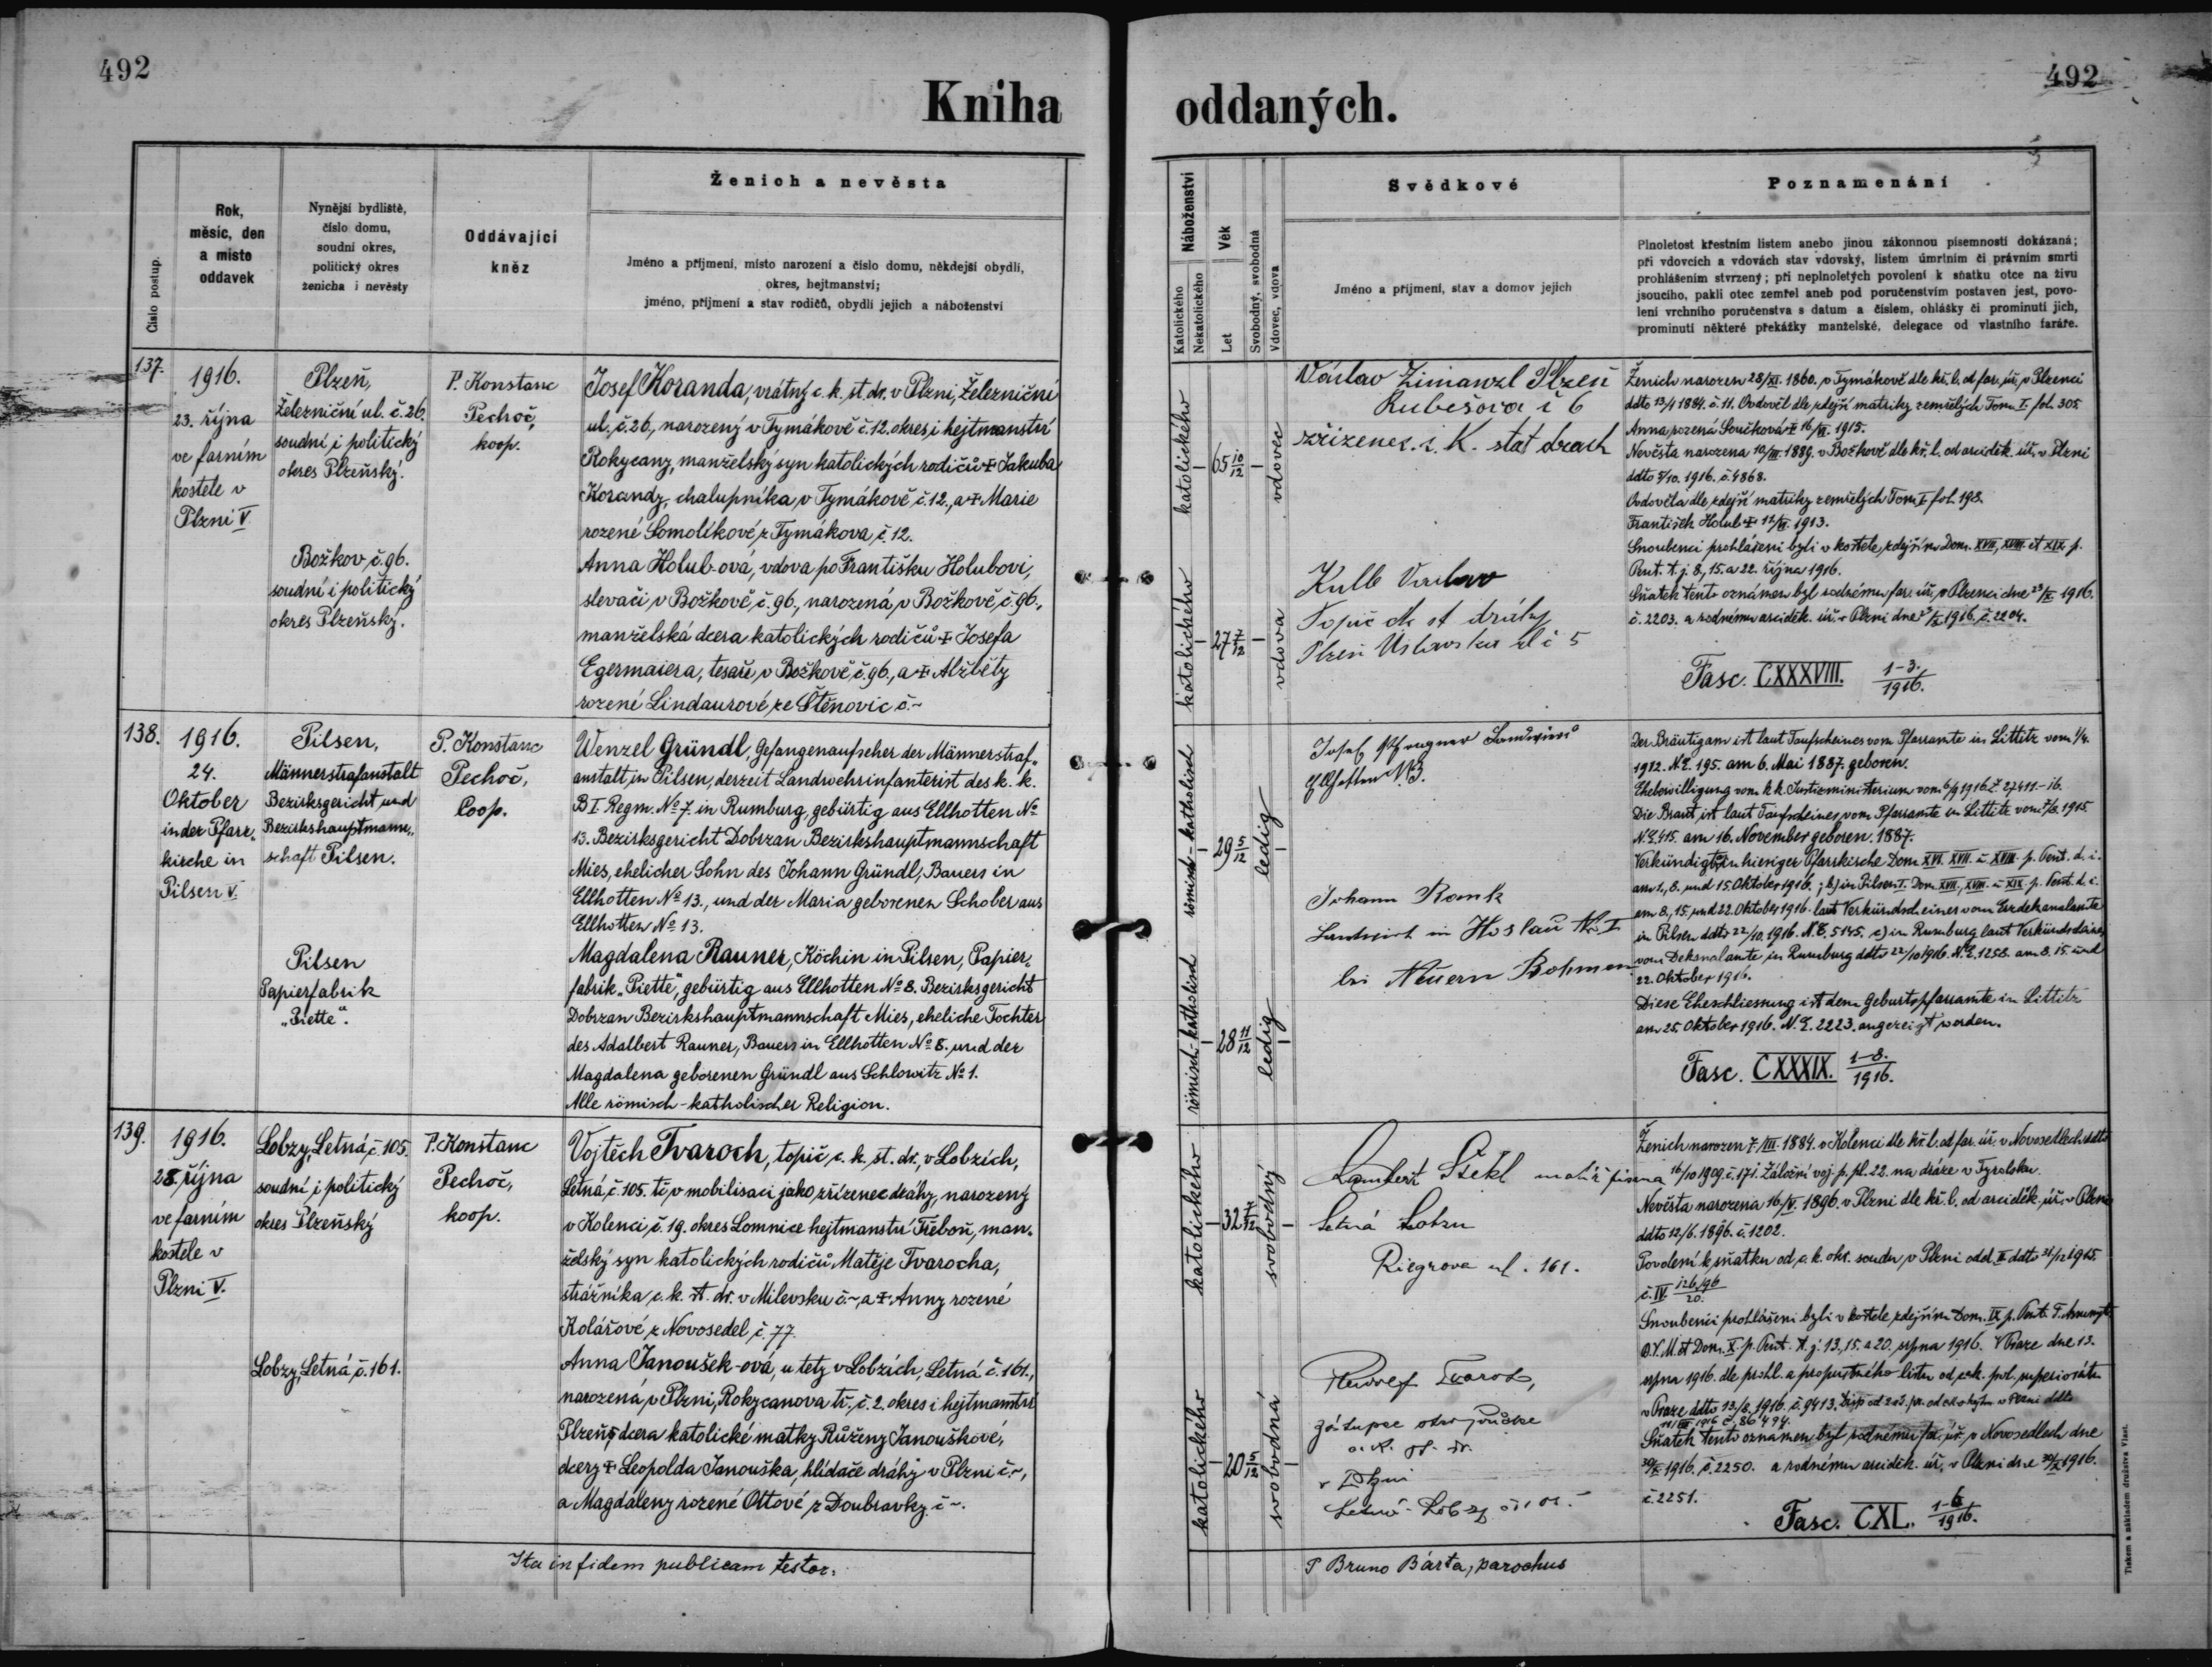 492
492
Kniha
oddaných.
Číslo postup.
Rok,
měsíc, den
a místo
oddavek
Nynější bydliště,
číslo domu,
soudní okres,
politický okres
ženicha i nevěsty
Oddávající
kněz
Ženich a nevěsta
Jméno a příjmení, místo narození a číslo domu, někdejší obydlí,
okres, hejtmanství;
jméno, příjmení a stav rodičů, obydlí jejich a náboženství
Náboženství
Katolického
Nekatolického
Věk
Let
Svobodný, svobodná
Vdovec, vdova
Svědkové
Jméno a příjmení, stav a domov jejich
Poznamenání
Plnoletost křestním listem anebo jinou zákonnou písemností dokázaná;
při vdovcích a vdovách stav vdovský, listem úmrtním či právním smrti
prohlášením stvrzený; při neplnoletých povolení k sňatku otce na živu
jsoucího, pakli otec zemřel aneb pod poručenstvím postaven jest, povo-
lení vrchního poručenstva s datum a číslem, ohlášky či prominutí jich,
prominutí některé překážky manželské, delegace od vlastního faráře.
137.
1916.
23. října
ve farním
kostele v
Plzni V
Plzeň,
Železniční ul. č. 26.
soudní i politický
okres Plzeňský.
Božkov, č. 96.
soudní i politický
okres Plzeňský.
P. Konstanc
Pechoč,
koop.
Josef Koranda, vrátný c. k. st. dr. v Plzni, Železniční
ul. č. 26, narozený v Tymákově č. 12. okres i hejtmanství
Rokycany, manželský syn katolických rodičů + Jakuba
Korandy, chalupníka v Tymákově č. 12., a + Marie
rozené Somolíkové z Tymákova, č. 12.
Anna Holub-ová, vdova po Františku Holubovi,
slevači v Božkově, č. 96., narozená v Božkově, č. 96.,
manželská dcera katolických rodičů + Josefa
Egermaiera, tesaře, v Božkově, č. 96., a + Alžběty
rozené Lindaurové, ze Štěnovic č. ~
katolického
65 10/12
vdovec
katolického
27 7/12
vdova
Václav Zimanzl Plzeň
Rubešova č 6
zřízenec. c. K. stat drach
Kulb Vaclav
Topič ck st dráhy
Plzeň Úslavska ul č 5
Ženich narozen 28/XI. 1860. v Tymákově dle kř. l. od far. úř. v Plzenci
ddto 13/1 1884. č. 11. Ovdověl dle zdejší matriky zemřelých Tom. I. fol. 305.
Anna rozená Součková + 16/VI. 1915.
Nevěsta narozena 10/III. 1889. v Božkově dle kř. l. od arciděk. úř. v Plzni
ddto 5/10. 1916. č. 4868.
Ovdověla dle zdejší matriky zemřelých Tom I. fol. 198.
František Holub + 12/VI. 1913.
Snoubenci prohlášeni byli v kostele zdejším Dom. XVII, XVIII. et XIX. p.
Pent. t. j. 8., 15. a 22. října 1916.
Sňatek tento oznámen byl rodnému far. úř. v Plzenci dne 23/X. 1916.
č. 2203. a rodnému arciděk. úř. v Plzni dne 23/X. 1916. č. 2204.
Fasc. CXXXVIII. 1-3./1916.
138.
1916.
24.
Oktober
in der Pfarr-
kirche in
Pilsen V.
Pilsen,
Männerstrafanstalt
Bezirksgericht und
Bezirkshauptmann-
schaft Pilsen.
Pilsen
Papierfabrik
„Piette“.
P. Konstanc
Pechoč,
Coop.
Wenzel Gründl, Gefangenaufseher der Männerstraf-
anstalt, in Pilsen, derzeit Landwehrinfanterist des k. k.
B I. Regm. No 7. in Rumburg, gebürtig aus Ellhotten No
13. Bezirksgericht Dobrzan Bezirkshauptmannschaft
Mies, ehelicher Sohn des Johann Gründl, Bauers in
Ellhotten No 13., und der Maria geborenen Schober aus
Ellhotten No 13.
Magdalena Rauner, Köchin in Pilsen, Papier-
fabrik „Piette“, gebürtig aus Ellhotten No 8. Bezirksgericht
Dobrzan Bezirkshauptmannschaft Mies, eheliche Tochter
des Adalbert Rauner, Bauers in Ellhotten No 8. und der
Magdalena geborenen Gründl aus Schlowitz No 1.
Alle römisch-katholischer Religion.
römisch-katholisch
29 5/12
ledig
römisch-katholisch
28 11/12
ledig
Josef
Ellhotten N. 13.
JohannRonk
Landwirt in Hoslau No I
bei Neuern Bohmen
Der Bräutigam ist laut Taufscheines vom Pfarramte in Littitz vom 1/4.
1912. N. E. 195. am 6. Mai 1887. geboren.
Ehebewilligung vom k. k. Justizministerium vom 6/9 1916. Z. 27411.-16.
Die Braut ist laut Taufscheines vom Pfarramte in Littitz vom 7/8. 1915
N. E. 415. am 16. November geboren. 1887.
Verkündigt a) in hieriger Pfarrkirche Dom. XVI. XVII. u. XVIII. p. Pent. d. i.
am 1., 8. und 15. Oktober 1916.; b) in Pilsen I. Dom. XVII., XVIII. u. XIX. p. Pent. d. i.
am 8., 15. und 22. Oktober 1916. laut Verkündscheines vom Erzdekanalamte
in Pilsen ddto 22/10. 1916. N. E. 5145. c) in Rumburg laut Verkündscheines
vom Dekanalamte in Rumburg ddto 22/10 1916. N. E. 1258. am 8. 15. und
22. Oktober 1916.
Diese Eheschliessung ist dem Geburtspfarramte in Littitz
am 25. Oktober 1916. N. E. 2223. angezeigt worden.
Fasc. CXXXIX. 1-8./1916.
139.
1916.
28. října
ve farním
kostele v
Plzni V.
Lobzy, Letná, č. 105.
soudní i politický
okres Plzeňský
Lobzy, Letná, č. 161.
P. Konstanc
Pechoč,
koop.
Vojtěch Tvaroch, topič c. k. st. dr., v Lobzích,
Letná, č. 105. tč. v mobilisaci jako zřízenec dráhy, narozený
v Kolenci, č. 19. okres Lomnice hejtmanství Třeboň, man-
želský syn katolických rodičů Matěje Tvarocha,
strážníka c. k. st. dr. v Milevsku č. ~, a + Anny rozené
Kolářové z Novosedel, č. 77.
Anna Janoušek-ová, u tety v Lobzích, Letná č. 161.,
narozená, v Plzni, Rokycanova tř., č. 2. okres i hejtmanství
Plzeň, dcera katolické matky Růženy Janouškové,
dcery + Leopolda Janouška, hlídače dráhy v Plzni č. ~,
a Magdaleny rozené Ottové z Doubravky č ~.
katolického
32 7/12
svobodný
katolického
20 5/12
svobodná
Lambert Štekl malíř písma
Letná Lobzu
Riegrova ul. 161.
Rudolf Tvaroch,
zástupce
c. k. st. dr.
v Plzni
Letná-Lobzy
Ženich narozen 7./III. 1884. v Kolenci dle kř. l. od far. úř. v Novosedlech ddto
16/10 1909. č. 171. Záložní voj. p. pl. 22. na dráze v Tyrolsku.
Nevěsta narozena 16/V. 1896. v Plzni dle kř. l. od arciděk. úř. v Plzni
ddto 12/6. 1896. č. 1202.
Povolení k sňatku od c. k. okr. soudu v Plzni odd. II ddto 31/12 1915.
č. IV. 126/96/20.
Snoubenci prohlášeni byli v kostele zdejším Dom. IX p. Pent. F. Assumpt.
B. V. M. et Dom. X. p. Pent. t. j. 13., 15. a 20. srpna 1916. V Praze dne 13.
srpna 1916. dle prohl. a propustného listu od c. k. pol. superiorátu
v Praze ddto 13/8. 1916. č. 9413.
Sňatek tento oznámen byl rodnému far. úř. v Novosedlech dne
30/X 1916. č. 2250. a rodnému arciděk. úř. v Plzni dne 30/X 1916.
č. 2251.
Fasc. CXL. 1-6/1916.
Ita in fidem publicam testor.
P Bruno Bárta, parochus
Tiskem a nákladem družstva Vlast.